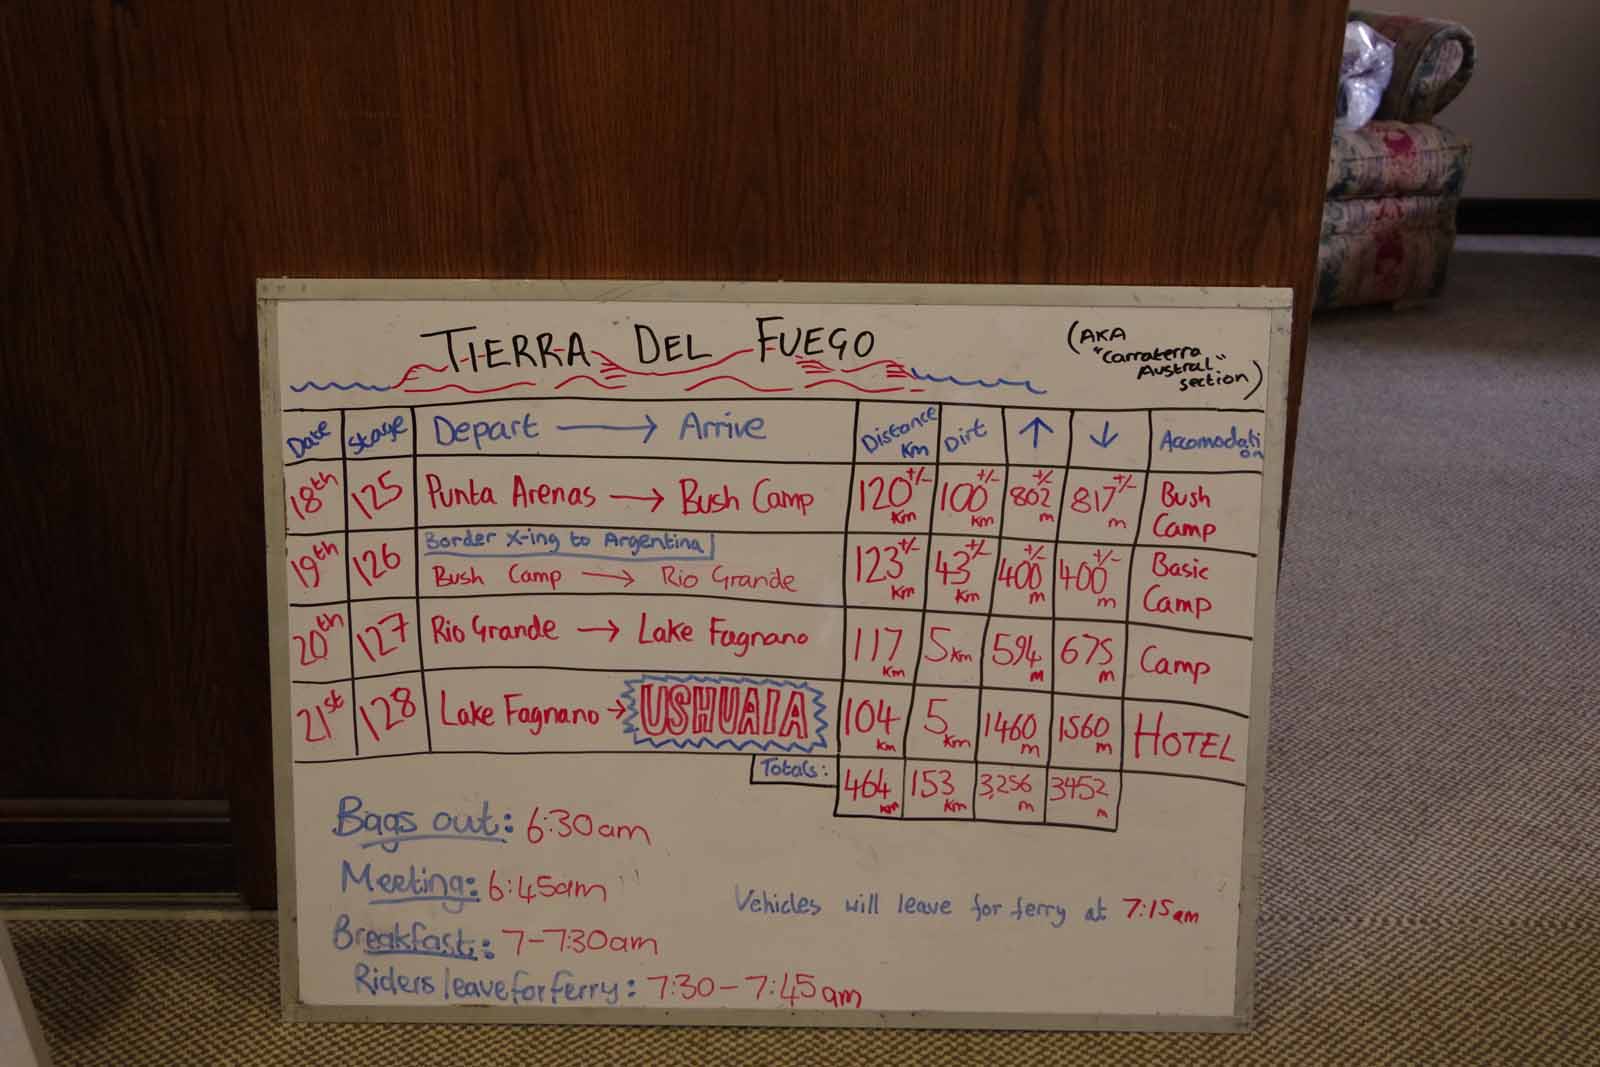 TIERRA DEL FUEGO
(AKA
"Carraterra
Austral"
section)
Date Stage Depart → Arrive Distance Km Dirt ↑ ↓ Accomodation
18th 125 Punta Arenas → Bush Camp 120+/- Km 100+/- Km 802+/- m 817+/- m Bush Camp
Border X-ing to Argentina
19th 126 Bush Camp → Rio Grande 123+/- Km 43+/- Km 400+/- m 400+/- m Basic Camp
20th 127 Rio Grande → Lake Fagnano 117 Km 5 Km 594 m 675 m Camp
21st 128 Lake Fagnano → USHUAIA 104 Km 5 Km 1460 m 1560 m HOTEL
Totals: 464 Km 153 Km 3,256 m 3452 m
Bags out: 6:30am
Meeting: 6:45am
Vehicles will leave for ferry at 7:15am
Breakfast: 7-7:30am
Riders leave for ferry: 7:30-7:45am